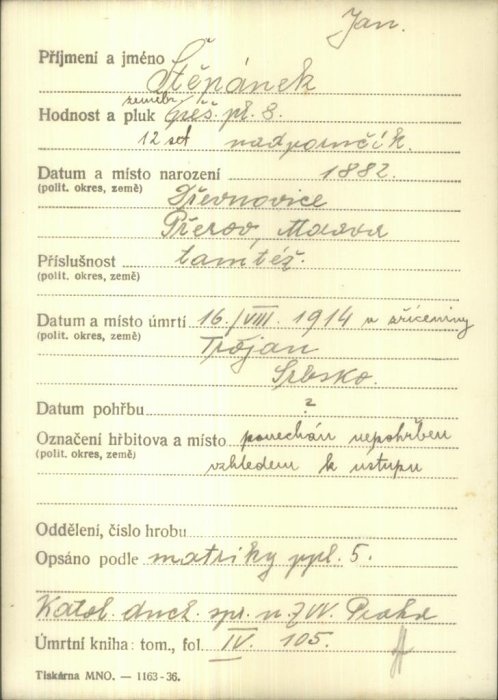 Jan.
Příjmení a jméno
Štěpánek
zeměbr.
Hodnost a pluk pěš. pl. 8.
12 set nadporučík.
Datum a místo narození 1882.
(polit. okres, země) Dřevnovice
Přerov, Morava
Příslušnost tamtéž.
(polit. okres, země)
Datum a místo úmrtí 16./VIII. 1914 u zříceniny
(polit. okres, země) Trojan
Srbsko.
Datum pohřbu ?
Označení hřbitova a místo ponechán nepohřben
(polit. okres, země) vzhledem k ústupu
Oddělení, číslo hrobu
Opsáno podle matriky ppl. 5.
Katol. duch. spr. n. ZVV. Praha
Úmrtní kniha: tom., fol. IV. 105.
Tiskárna MNO. — 1163-36.